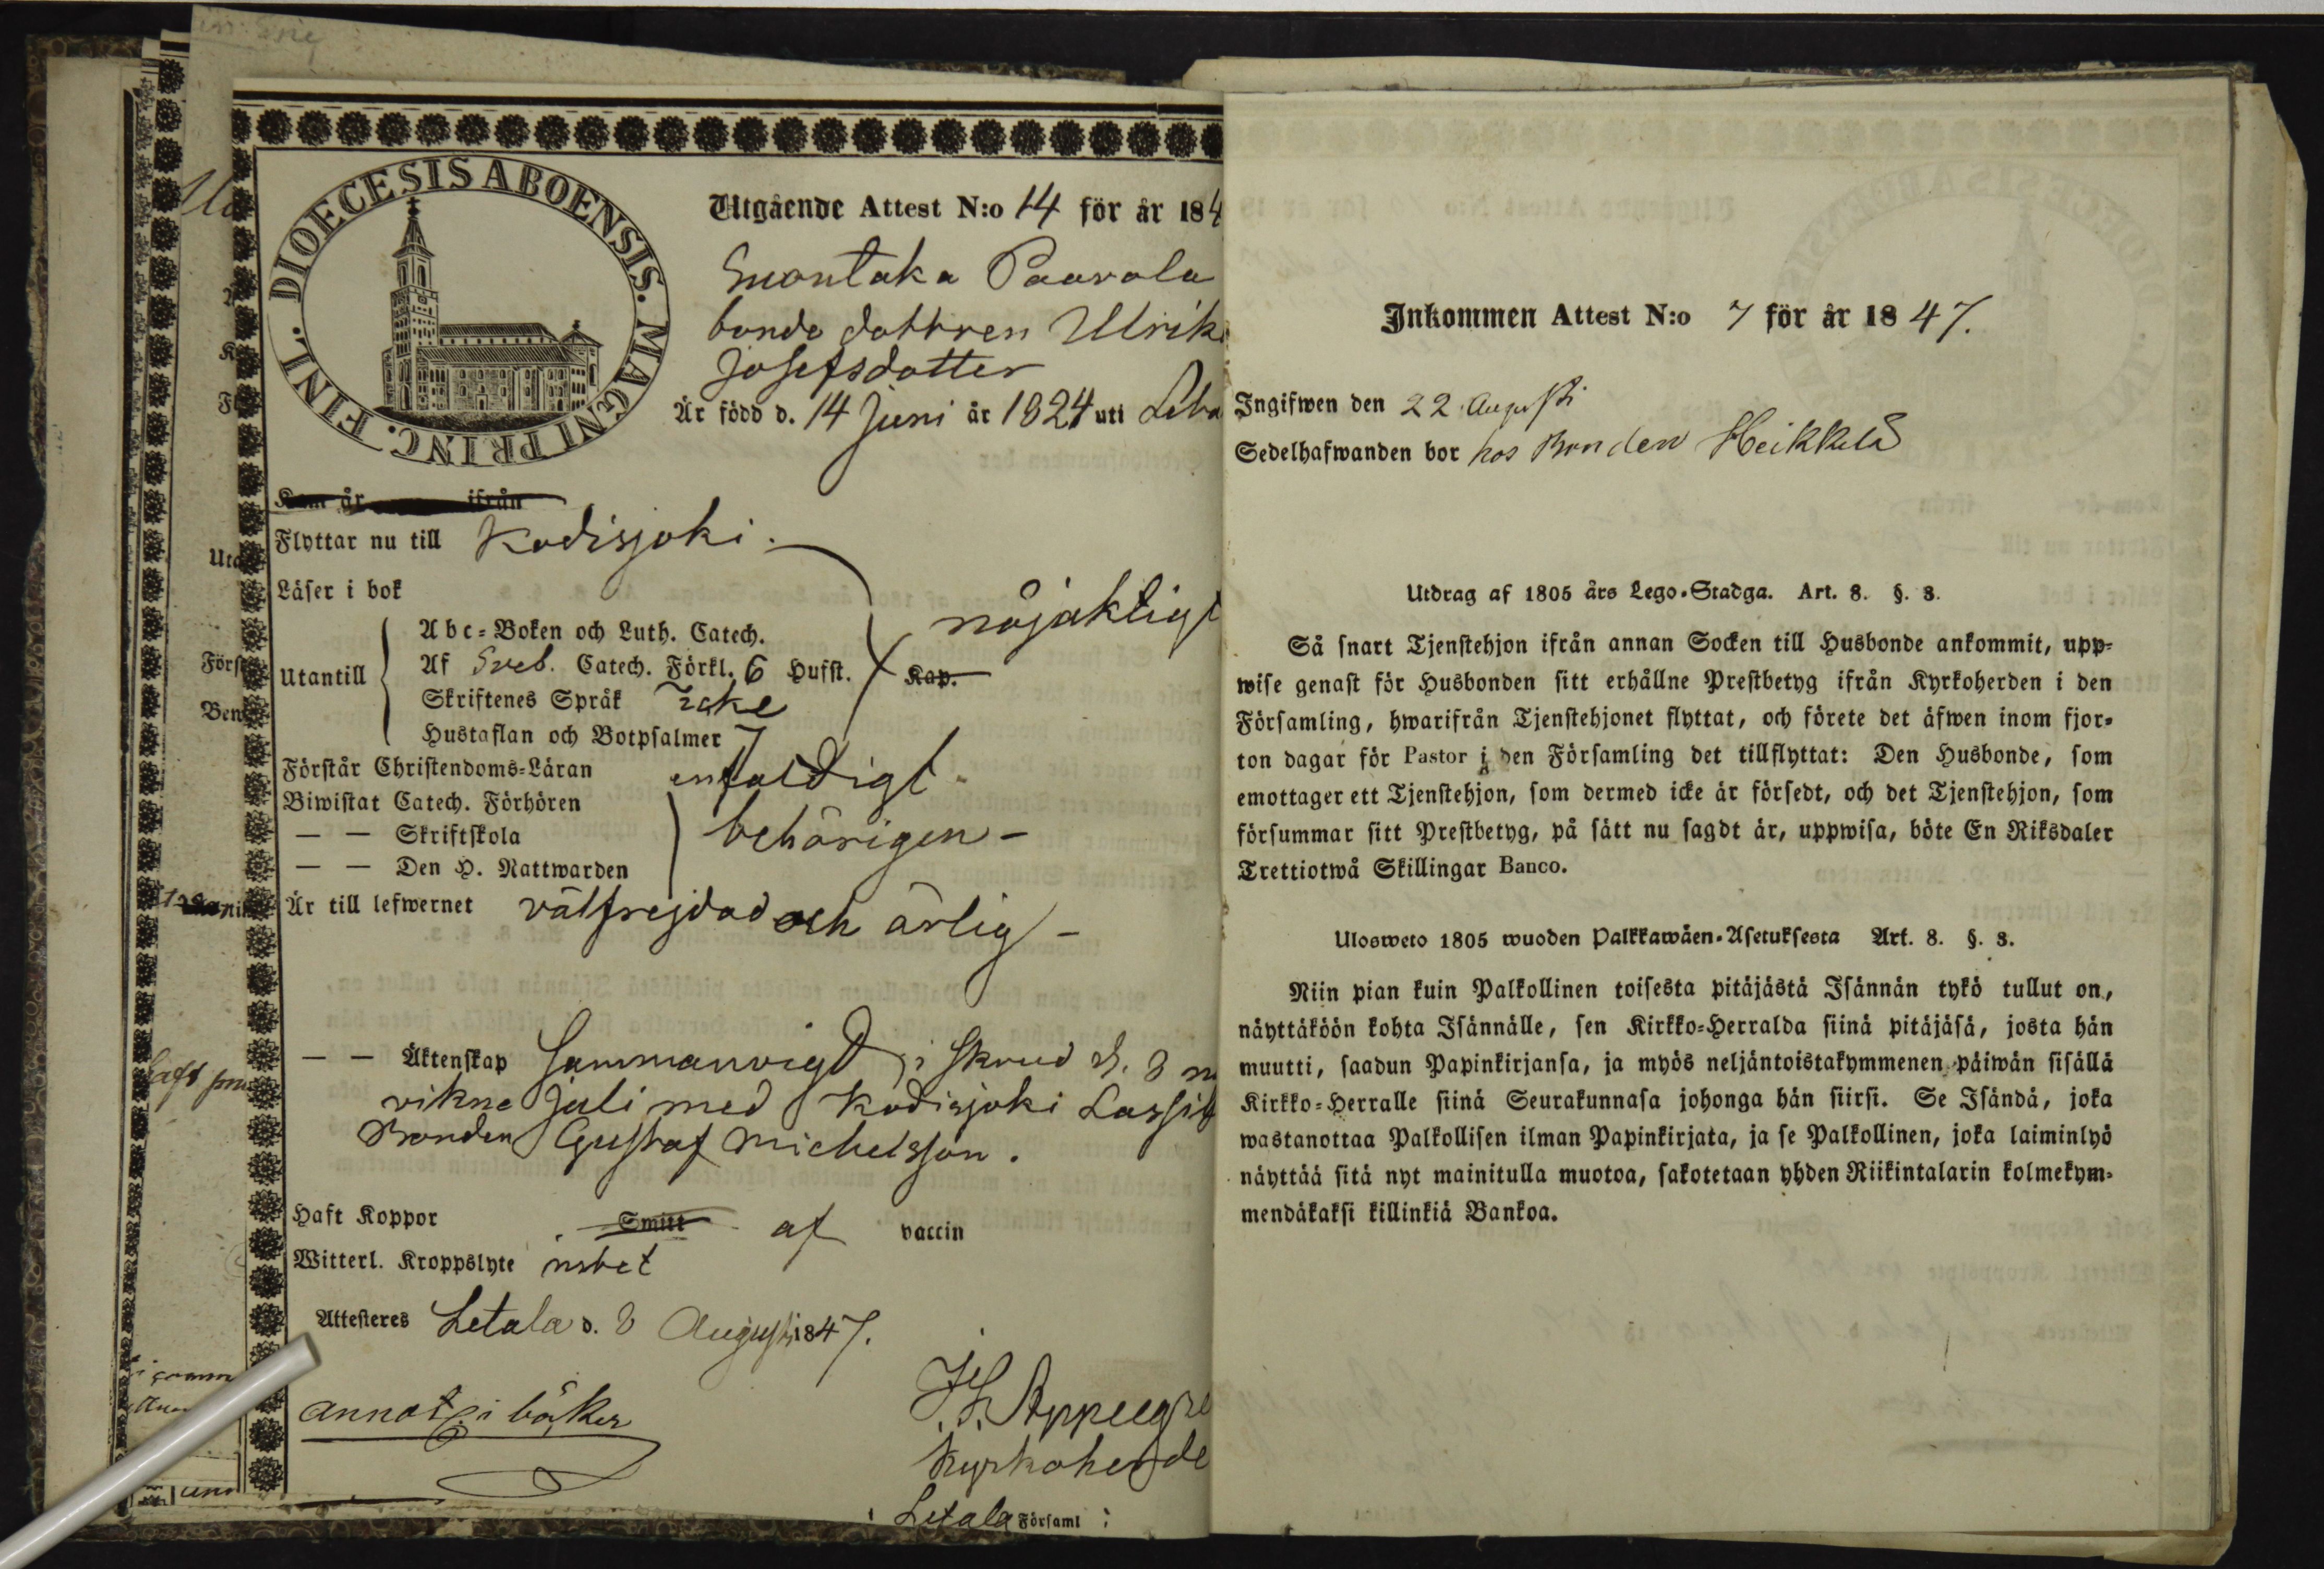 DIOECESIS ABOENSIS. MAGNI PRINC. FINL.
Utgående Attest N:o 14 för år 184
Suontaka Paavola
bonde dottren Ulrika
Josefsdotter
Är född d. 14 Juni år 1824 uti Leta
Kom år ifrån
Flyttar nu till Kodisjoki.
Läser i bok
nöjaktigt
Utantill
Abc-Boken och Luth. Catech.
Af Sveb. Catech. Förkl. 6 Hufst. Kap.
Skriftenes Språk Icke
Hustaflan och Botpsalmer
Förstår Christendoms-Läran enfaldigt
Biwistat Catech. Förhören
— — Skriftskola behörigen –
— — Den H. Nattwarden
Är till lefwernet välfrejdad och ärlig –
— — Äktenskap Sammanvigd i Skrud d. 8
vikne Juli med Kodisjoki Lassil
Bonden Gustaf Michelsson.
Haft Koppor Smitt af vaccin
Witterl. Kroppslyte intet
Attesteres Letala d. 8 Augusti 1847.
annot. i böker
Kyrkoherde
Letala Församl:
Inkommen Attest N:o 7 för år 1847.
Ingifwen den 22 Augusti
Sedelhafwanden bor hos Bonden Heikkilä
Utdrag af 1805 års Lego-Stadga. Art. 8. §. 8.
Så snart Tjenstehjon ifrån annan Socken till Husbonde ankommit, upp-
wise genast för Husbonden sitt erhållne Prestbetyg ifrån Kyrkoherden i den
Församling, hwarifrån Tjenstehjonet flyttat, och förete det äfwen inom fjor-
ton dagar för Pastor i den Församling det tillflyttat: Den Husbonde, som
emottager ett Tjenstehjon, som dermed icke är försedt, och det Tjenstehjon, som
försummar sitt Prestbetyg, på sätt nu sagdt är, uppwisa, böte En Riksdaler
Trettiotwå Skillingar Banco.
Ulosweto 1805 wuoden Palkkawäen-Asetuksesta Art. 8. §. 8.
Niin pian kuin Palkollinen toisesta pitäjästä Isännän tykö tullut on,
näyttäköön kohta Isännälle, sen Kirkko-Herralda siinä pitäjäsä, josta hän
muutti, saadun Papinkirjansa, ja myös neljäntoistakymmenen päiwän sisällä
Kirkko-Herralle siinä Seurakunnasa johonga hän siirsi. Se Isändä, joka
wastanottaa Palkollisen ilman Papinkirjata, ja se Palkollinen, joka laiminlyö
näyttää sitä nyt mainitulla muotoa, sakotetaan yhden Riikintalarin kolmekym-
mendäkaksi killinkiä Bankoa.